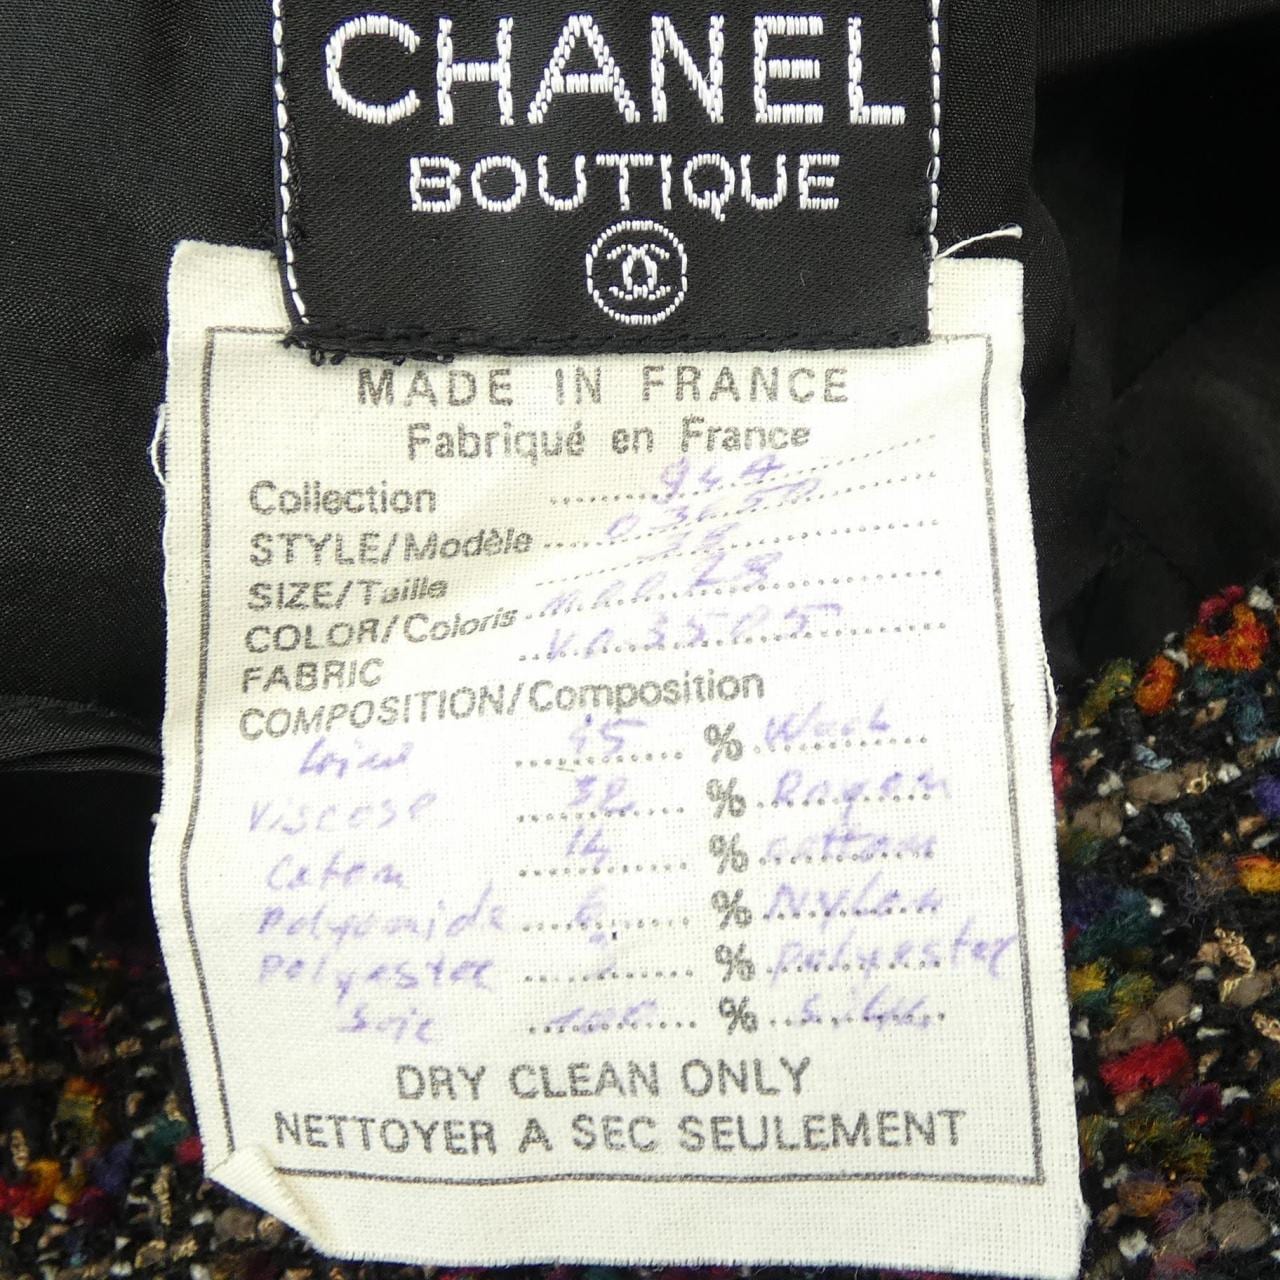 CHANEL
BOUTIQUE
MADE IN FRANCE
Fabriqué en France
Collection 944
STYLE/Modèle
SIZE/Taille 38
COLOR/Coloris
FABRIC V03505
COMPOSITION/Composition
45 % Wool
Viscose 32 % Rayon
Coton 14 % cotton
Polyamide 6 % Nylon
Polyester % polyester
Soie 100 % silk
DRY CLEAN ONLY
NETTOYER A SEC SEULEMENT